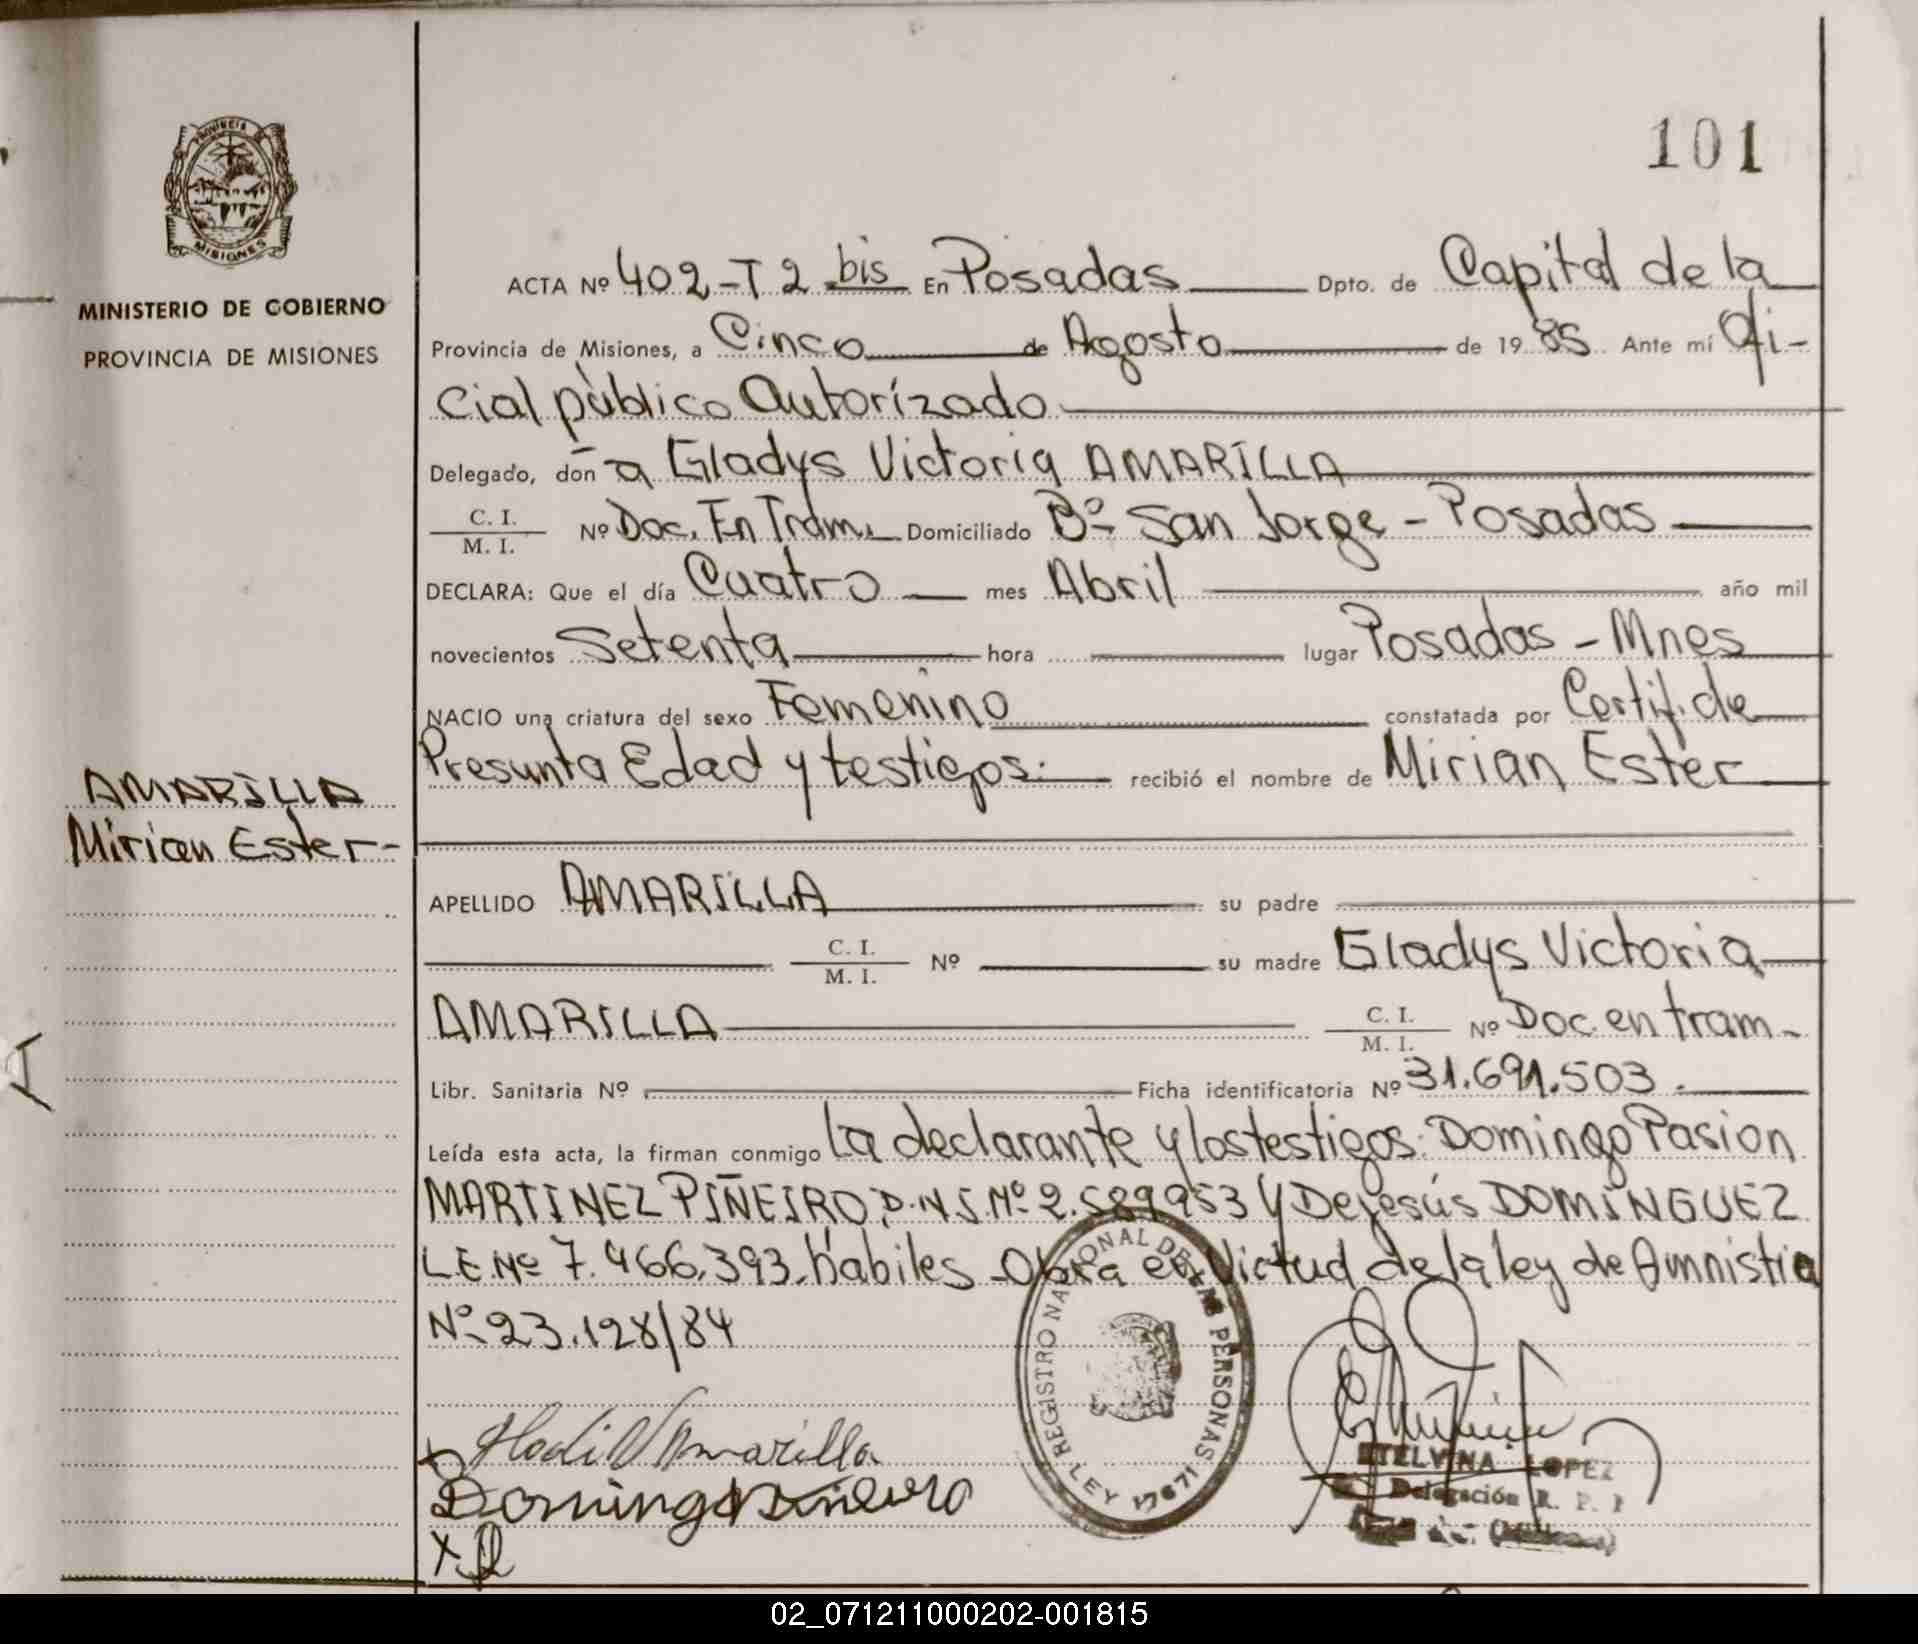 101
PROVINCIA
MISIONES
MINISTERIO DE GOBIERNO
PROVINCIA DE MISIONES
ACTA Nº 402-T2 bis En Posadas Dpto. de Capital de la
Provincia de Misiones, a Cinco de Agosto de 1985 Ante mí Ofi-
cial público Autorízado
Delegado, don a Gladys Victoria AMARILLA
C. I.
M. I. Nº Doc. En Tram. Domiciliado Bº San Jorge - Posadas
DECLARA: Que el día Cuatro mes Abril año mil
novecientos Setenta hora lugar Posadas - Mnes
NACIO una criatura del sexo Femenino constatada por Certif. de
Presunta Edad y testigos. recibió el nombre de Mirian Ester
AMARILLA
Mirian Ester-
APELLIDO AMARILLA su padre
C. I.
M. I. Nº su madre Gladys Victoria
AMARILLA C. I.
M. I. Nº Doc. en tram-
Libr. Sanitaria Nº Ficha identificatoria Nº 31.691.503.
Leída esta acta, la firman conmigo la declarante y los testigos: Domingo Pasion
MARTINEZ PIÑEIRO, D.N.I. Nº 2.589953 y Dejesús DOMINGUEZ
L.E. Nº 7.466.393. habiles - Obra en Victud de la ley de Amnistia
Nº 23.128/84
REGISTRO NACIONAL DE LAS PERSONAS
LEY 17671
Amarilla
Domingo
X
ETELVINA LOPEZ
Delegación R. P.